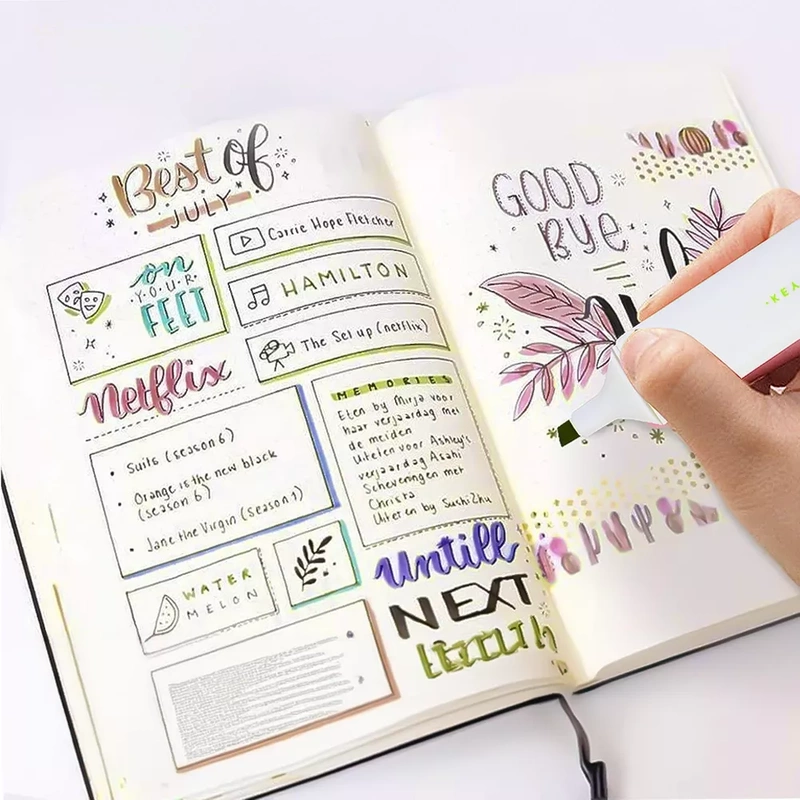 Best of
JULY
on
YOUR
FEET
Carrie Hope Fletcher
HAMILTON
The Set up (netflix)
Netflix
• Suits (season 6)
• Orange is the new black
(season 6)
• Jane the Virgin (season 1)
MEMORIES
Eten by Mirja voor
haar verjaardag met
de meiden
Uiteten voor Ashley's
verjaardag Asahi
Scheveningen met
Christa
Uiteten by Sushi Zhu
WATER
MELON
Untill
NEXT
GOOD
Bye